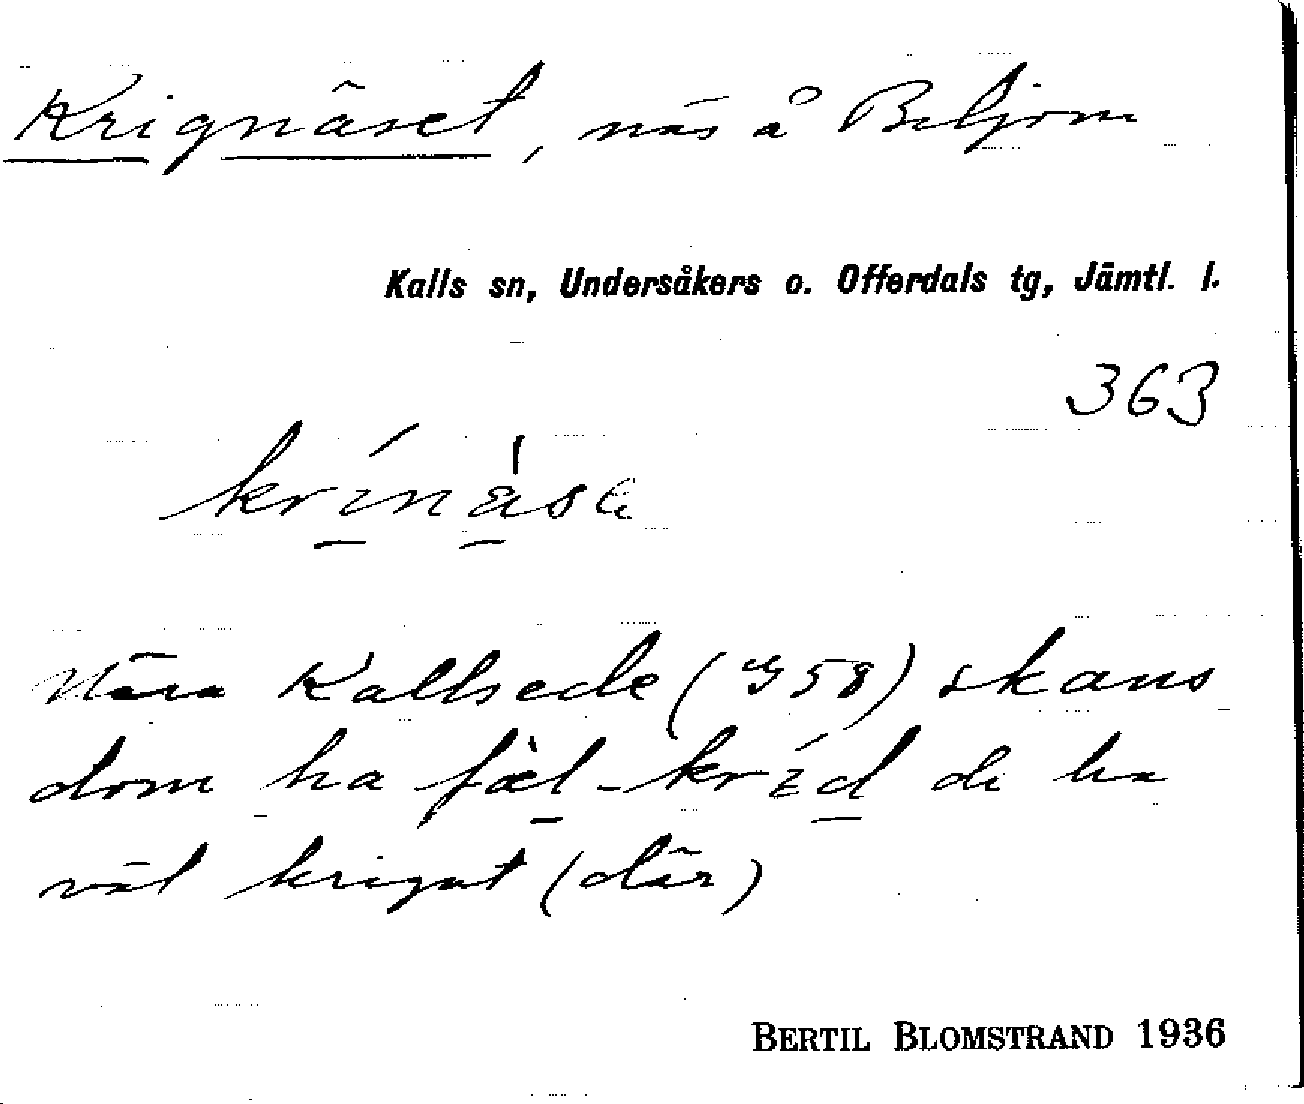 Krignäset, näs å Beljom
Kalls sn, Undersåkers o. Offerdals tg, Jämtl. l.
363
krínàse
Nära Kallsede (958) skans
dom ha fæl-kríd de ha
vät krignt (där)
BERTIL BLOMSTRAND 1936